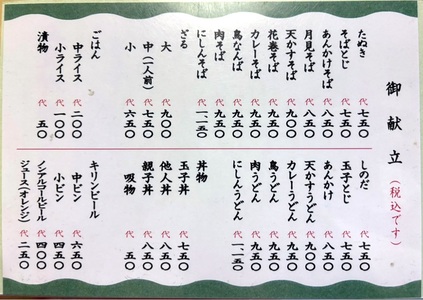 御献立（税込です）
たぬき 代 七五〇
そばとじ 代 七五〇
あんかけそば 代 八五〇
月見そば 代 八五〇
天かすそば 代 九五〇
花巻そば 代 九五〇
カレーそば 代 九五〇
鳥なんば 代 九五〇
肉そば 代 九五〇
にしんそば 代 一、一五〇
ざる
大 代 九〇〇
中（一人前） 代 七五〇
小 代 六五〇
ごはん
中ライス 代 二〇〇
小ライス 代 一〇〇
漬物 代 五〇
しのだ 代 七五〇
玉子とじ 代 七五〇
あんかけ 代 八五〇
天かすうどん 代 九五〇
カレーうどん 代 九五〇
鳥うどん 代 九五〇
肉うどん 代 九五〇
にしんうどん 代 一、一五〇
丼物
玉子丼 代 七五〇
他人丼 代 八五〇
親子丼 代 八五〇
吸物 代 五〇
キリンビール
中ビン 代 六五〇
小ビン 代 四五〇
ノンアルコールビール 代 四〇〇
ジュース（オレンジ） 代 二五〇